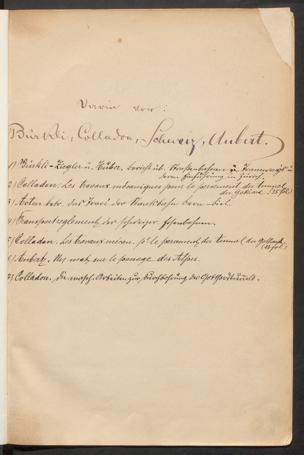 Darin von:
Bürkli, Colladon, Schweiz, Aubert.
1) Bürkli-Ziegler u. Huber. Bericht üb. Strassenbahnen u.
deren Einführung in Zürich.
2) Colladon. Les travaux mécaniques pour le percement du tunnel
du Gothard.
3) Acten betr. das Bern-Biel.
4) Transportreglement der schweizer. Eisenbahnen.
5) Colladon. Les travaux mécan. p. le percement du tunnel du Gothard
6) Aubert. sur le passage des Alpes.
7) Colladon. Die masch. Arbeiten zur Durchbohrung des Gotthardtunnels.